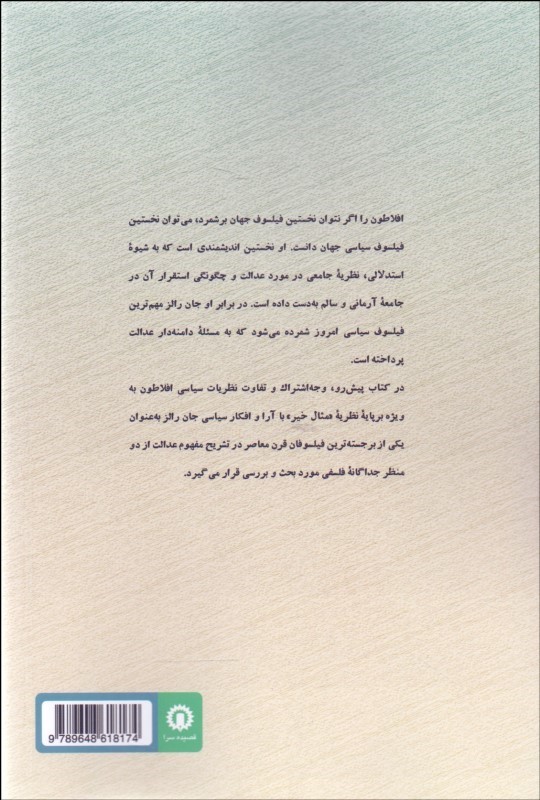 افلاطون را اگر نتوان نخستین فیلسوف جهان برشمرد، می‌توان نخستین
فیلسوف سیاسی جهان دانست. او نخستین اندیشمندی است که به شیوهٔ
استدلالی، نظریهٔ جامعی در مورد عدالت و چگونگی استقرار آن در
جامعهٔ آرمانی و سالم به‌دست داده است. در برابر او جان رالز مهم‌ترین
فیلسوف سیاسی امروز شمرده می‌شود که به مسئلهٔ دامنه‌دار عدالت
پرداخته است.
در کتاب پیش‌رو، وجه‌اشتراك و تفاوت نظریات سیاسی افلاطون به
ویژه برپایهٔ نظریهٔ «مثال خیر» با آرا و افکار سیاسی جان رالز به‌عنوان
یکی از برجسته‌ترین فیلسوفان قرن معاصر در تشریح مفهوم عدالت از دو
منظر جداگانهٔ فلسفی مورد بحث و بررسی قرار می‌گیرد.
قصیده سرا
9 789648 618174